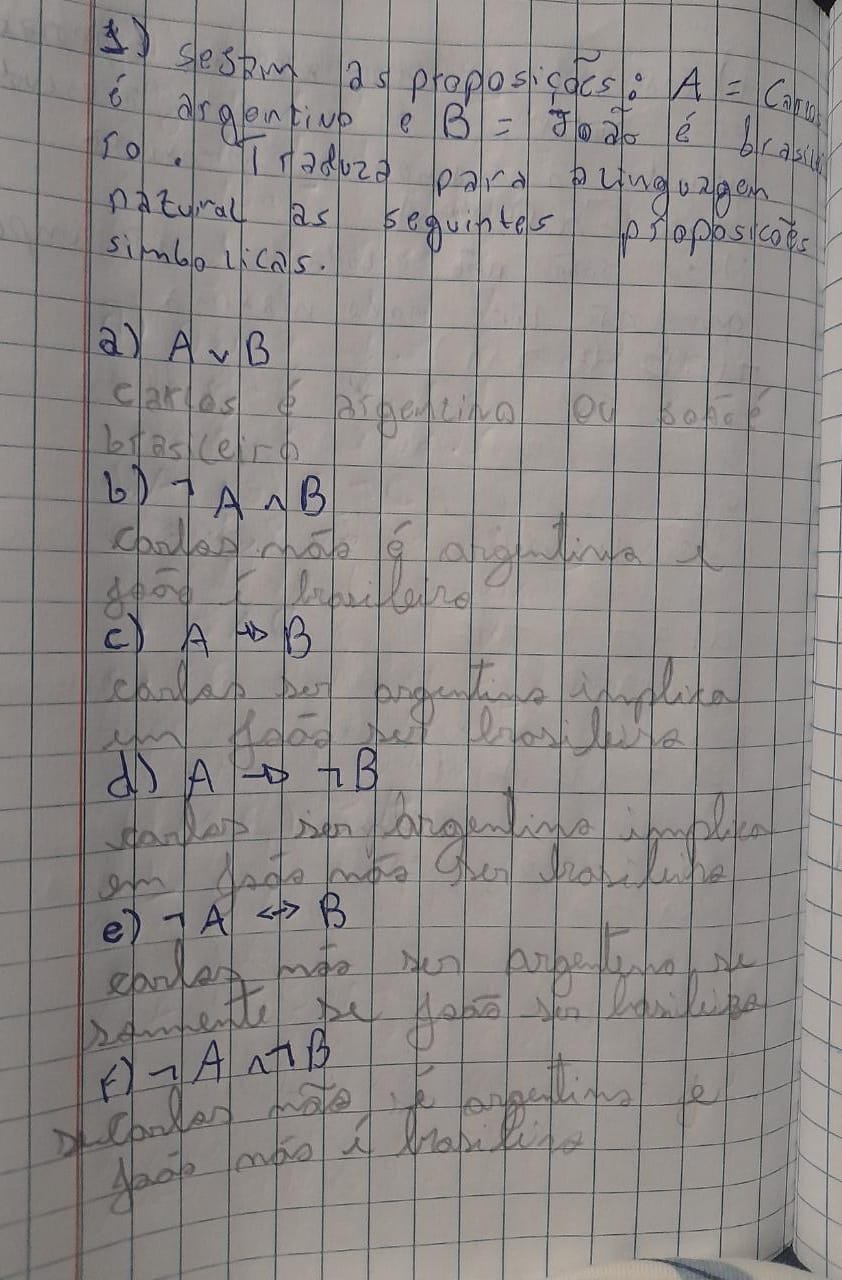 1) sejam as proposições: A = Carlos
é argentino e B = João é brasilei
ro. Traduza para a linguagem
natural as seguintes proposicões
simbolicas.
a) A ∨ B
carlos é argentino ou João é
brasileiro
b) ¬ A ∧ B
Carlos não é argentino e
João é brasileiro
c) A → B
carlos ser argentino implica
em João ser brasileiro
d) A → ¬B
carlos ser argentino implica
em João não ser brasileiro
e) ¬ A ↔ B
carlos não ser argentino, se
somente se João ser brasileiro
f) ¬ A ∧ ¬ B
Carlos não é argentino e
João não é brasileiro